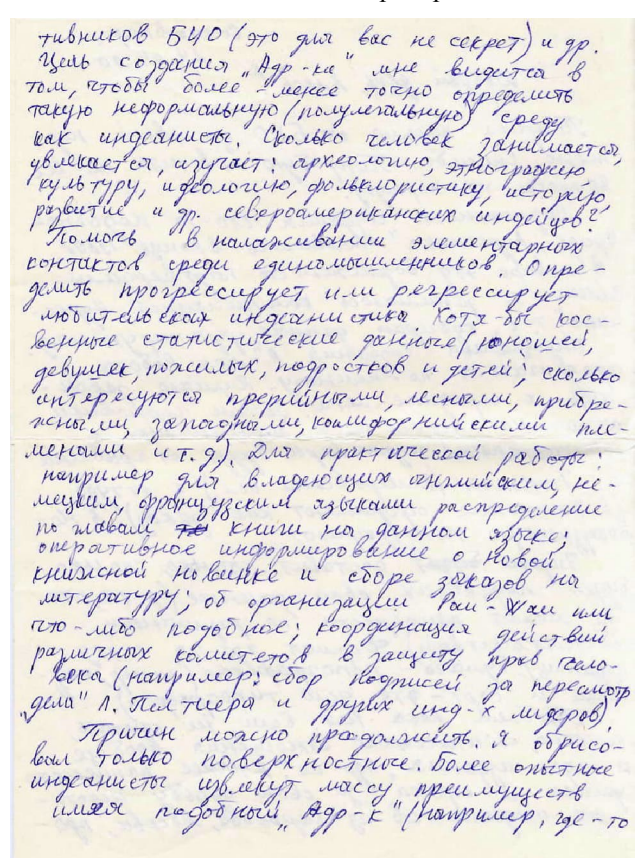 тивников БЦО (это для вас не секрет) и др.
Цель создания „Адр-ка" мне видится в
том, чтобы более-менее точно определить
такую неформальную (полулегальную) среду
как индеанисты. Сколько человек занимается,
увлекается, изучает: археологию, этнографию
культуру, идеологию, фольклористику, историю,
развитие и др. североамериканских индейцев?
Помочь в налаживании элементарных
контактов среди единомышленников. Опре-
делить прогрессирует или регрессирует
любительская индеанистика. Хотя-бы кос-
венные статистические данные (юношей,
девушек, пожилых, подростков и детей; сколько
интересуются прерийными, лесными, прибре-
жными, западными, калифорнийскими пле-
менами и т.д). Для практической работы:
например для владеющих английским, не-
мецким, французским языками распределение
по главам книги на данном языке;
оперативное информирование о новой
книжной новинке и сборе заказов на
литературу; об организации Пау-Wау или
что-либо подобное; координация действий
различных комитетов в защиту прав чело-
века (например: сбор подписей за пересмотр
„дела" Л. Пелтиера и других инд-х лидеров).
Причин можно продолжить. Я обрисо-
вал только поверхностные. Более опытные
индеанисты извлекут массу преимуществ
имея подобный „Адр-к" (например, где-то